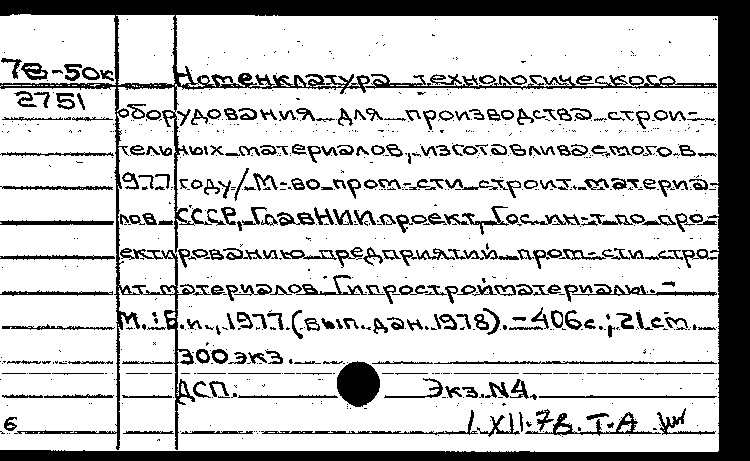 78-50к Номенклатура технологического
2751
оборудования для производства строи-
тельных материалов, изготавливаемого в
1977 году/М-во пром-сти строит. материа-
лов СССР, ГлавНИИпроект, Гос. ин-т по про-
ектированию предприятий пром-сти стро-
ит. материалов Гипростройматериалы. -
М.: Б.и., 1977 (вып. дан. 1978). - 406с.; 21 cm.
300 экз.
ДСП. Экз. N4.
6 1.XII.78. Т-А